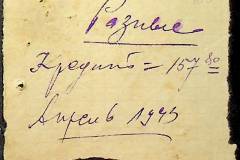 Разные
Кредит = 157 80
Апрель 1943